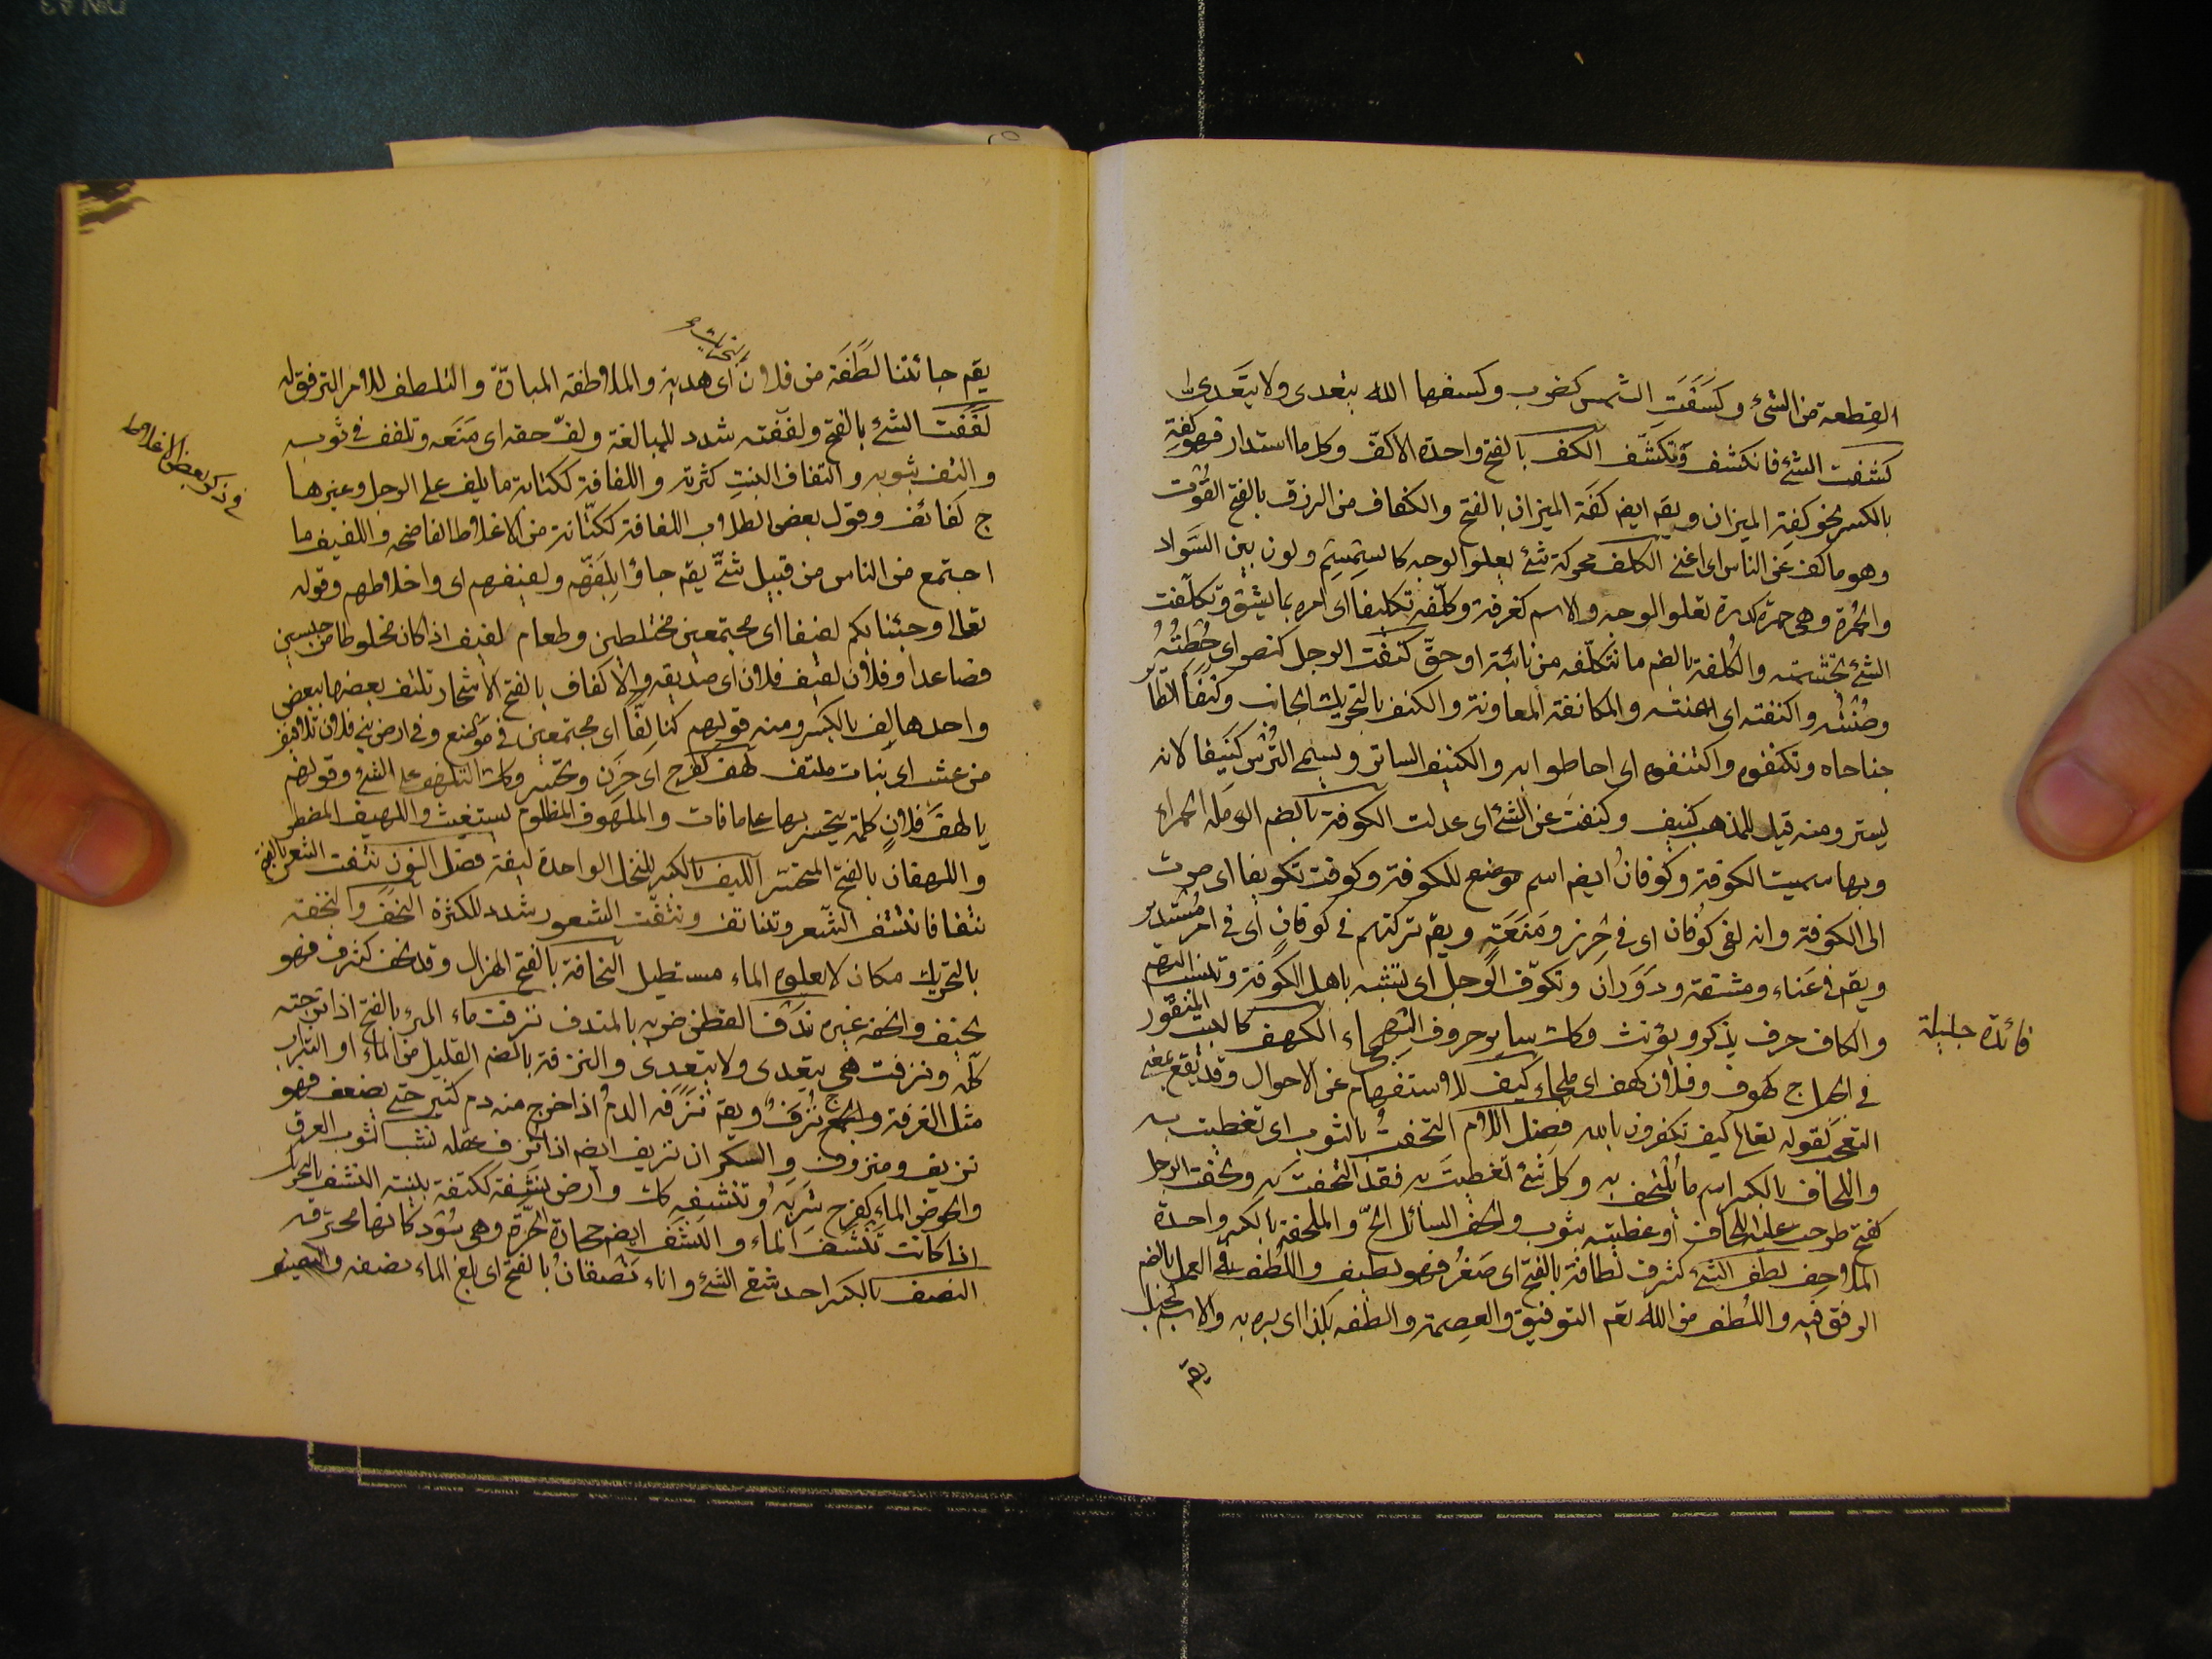 القطعة من الشئ وكَسَفَتِ الشمس كضرب وكسفها الله يتعدى ولا يتعدى
كشفت الشئ فانكشف وتكشّف الكف بالفتح واحدة الاكفّ وكل ما استدار فهو كِفة
بالكسر نحو كِفة الميزان ويقم ايضم كَفّة الميزان بالفتح والكفاف من الرزق بالفتح القُوْت
وهو ما كفّ عن الناس اى اغنى الكلف محركة شئ يعلو الوجه كالسِمسِم ولون بين السَّواد
والحُمْرة وهى حمرة كدرة تعلو الوجه والاسم كغرفة وكلّفه تكليفا اى امره بما يشق وتكلّفت
الشئ تجشمته والكُلفة بالضم ما تتكلّفه من نائبة او حقّ كنفت الرجل كنصر اى حُطْتُهُ
وصُنْتُه واكنفته اى اعنته والمكانفة المعاونة والكنف بالتحريك الجانب وكَنَفَا الطائر
جناحاه وتكنّفوه واكتنفوه اى احاطوا به والكنيف الساتر ويسمى التُّرْس كَنِيفا لانه
يستر ومنه قيل للمذهب كنيف وكنفت عن الشئ اى عدلت الكوفة بالضم الرملة الحمراء
وبها سميت الكوفة وكُوفانُ ايضم اسم موضع للكوفة وكوفت تكويفا اى صرت
الى الكوفة وانه لفى كُوفان اى فى حِرز ومَنَعَةٍ ويقم تركتهم فى كوفانٍ اى فى امر مُسْتدير
ويقم فى عَناء ومشقة ودَوَران وتكوّف الرجل اى تشبّه باهل الكوفة وتنسب اليهم
والكاف حرف يذكر ويؤنث وكك سائر حروف التهجاء الكهف كالبيت المنقور
فى الجبل ج كهوف وفلان كهف اى ملجاء كيف للاستفهام عن الاحوال وقد يقع بمعنى
التعجب كقوله تعالى كيف تكفرون بالله فصل اللام التحفتُ بالثوب اى تغطيت به
واللحاف بالكسر اسم ما يُلتحف به وكل شئ تغطيتَ به فقد التحفتَ به ولحفت الرجل
كفتح طرحت عليه اللحاف او غطيته بثوب والحف السائل الحّ والملحفة بالكسر واحدة
الملاحِف لطف الشئ كشرف لطافة بالفتح اى صَغُر فهو لطيف واللُطف فى العمل بالضم
الرفق فيه واللُطف من الله تعم التوفيق والعِصمة والطفه بكذا اى بره به والاسم كجبل
يقم
فائدة جليلة
يقم جائتنا لَطَفَة من فلان اى هدية والملاطفة المبارّة والتلطف للامر الترفق له
بالتحريك
لَفَفت الشئ بالفتح ولففته شدد للمبالغة ولفّ حقه اى مَنَعه وتلفف فى ثوبه
والتف بثوبه والتفاف النبتِ كثرته واللفافة ككتابة ما يلف على الرجل وغيرها
ج لَفائف وقول بعض الطلاب اللفافة ككتّانة من الاغلاط الفاضحه واللفيف ما
فى ذكر بعض الاغلاط
اجتمع من الناس من قبيل شتّى يقم جاؤا بِلَفّهم ولفيفهم اى واخلاطهم وقوله
تعالى وجئنا بكم لفيفا اى مجتمعين مختلطين وطعام لفيف اذا كان مخلوطا من جنسين
فصاعدا وفلان لفيف فلان اى صديقه والالفاف بالفتح الاشجار تلتف بعضها ببعض
واحدها لِف بالكسر ومنه قولهم كنا لِفًّا اى مجتمعين فى موضع وفى ارض بنى فلان تلافيف
من عشب اى نبات ملتف لهف كفرح اى حَزِن وتحسر وكك التلهف على الشئ وقولهم
يا لهفَ فلانٍ كلمة يتحسر بها على ما فات والملهوف المظلوم يستغيث واللهيف المضطر
واللهفان بالفتح المتحسر الليف بالكسر للنخل الواحدة ليفة فصل النون نتفت الشعر بالفتح
نتفا فانتتف الشّعر وتناتف ونتّفت الشعور شدد للكثرة النجف والنجفة
بالتحريك مكان لا يعلوه الماء مستطيل النحافة بالفتح الهزال وقد نحف كشرف فهو
نحيف وانحفه غيره ندَف القطن ضربه بالمندف نزفت ماء البئر بالفتح اذا نزحته
كلّه ونزفت هى يتعدى ولا يتعدى والنزفة بالضم القليل من الماء او الشراب
مثل الغرفة والجمع نُزَفٌ ويقم نَزَفه الدمُ اذا خرج منه دم كثير حتى يضعف فهو
نزيف ومنزوف والسكران نزيف ايضم اذا نزف عقله نشف الثوب العرق
والحوض الماء كفرح شربه وتنشفه كك وارض نَشِفة ككتفة بينة النشف بالتحريك
اذا كانت تَنْشَف الماء والنشَف ايضم حجارة الحَرّة وهى سُوْد كانها محترقة
النصف بالكسر احد شقى الشئ واناء نَصْفانُ بالفتح اى بلغ الماء نصفه والنصيف